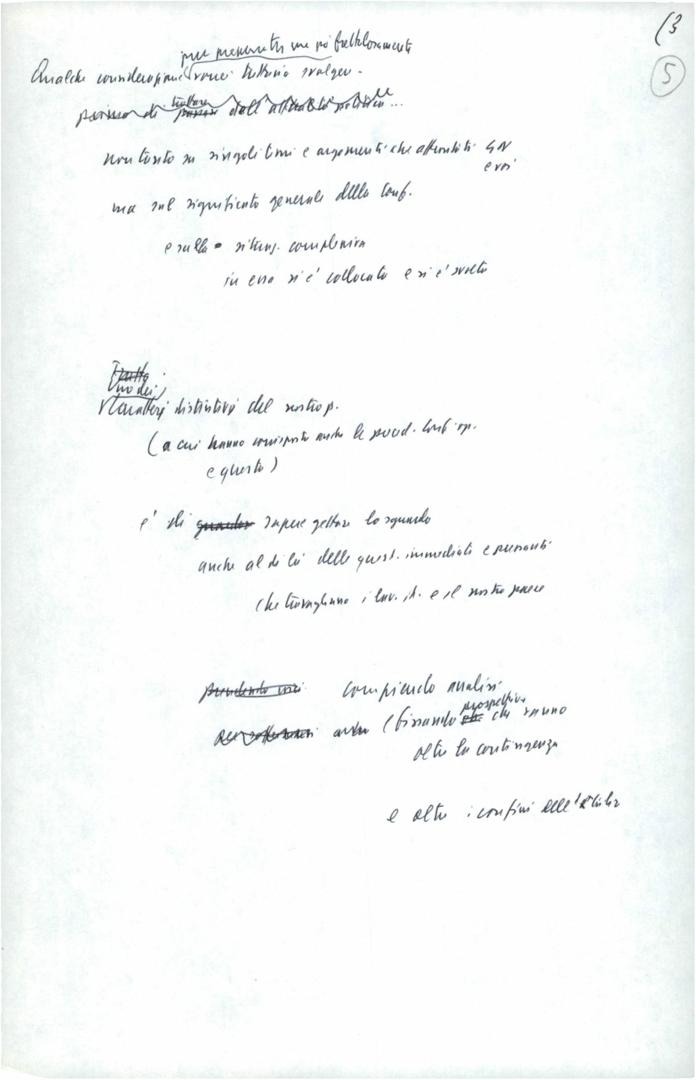 (3
5
pur necessariamente un po' frettolosamente
Qualche considerazione vorrei tuttavia svolgere.
prima di trattare dell'attualità politica...
non tanto su singoli temi e argomenti che affrontati GN
e voi
ma sul significato generale della Conf.
e sulla situaz. complessiva
in essa si è collocata e si è svolta
Tratto
Uno dei
caratteri distintivi del nostro p.
(a cui hanno corrisposto anche le preced. Conf. op.
e questa)
è di saper gettare lo sguardo
anche al di là delle quest. immediate e pressanti
che travagliano i lav. it. e il nostro paese
prendendo compiendo analisi
prospettive
anche (fissando che vanno
oltre la contingenza
e oltre i confini dell'Italia